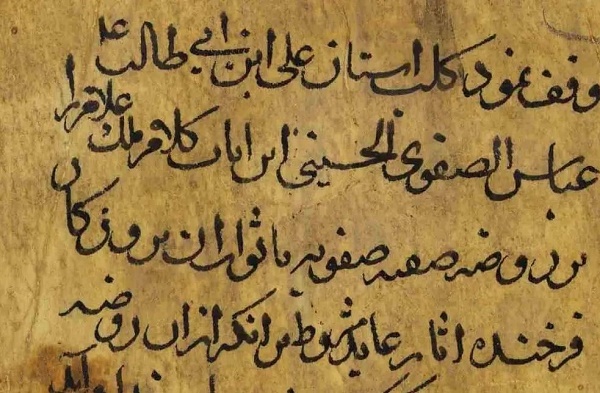 وقف نمود کلب استان علی ابن ابی طالب
عباس الصفوی الحسینی این ایات کلام ملک علام را
بر روضه صفیه صفویه تا ثواب ان بروزکار
فرخنده اثار عاید بر انکه ازان روضه